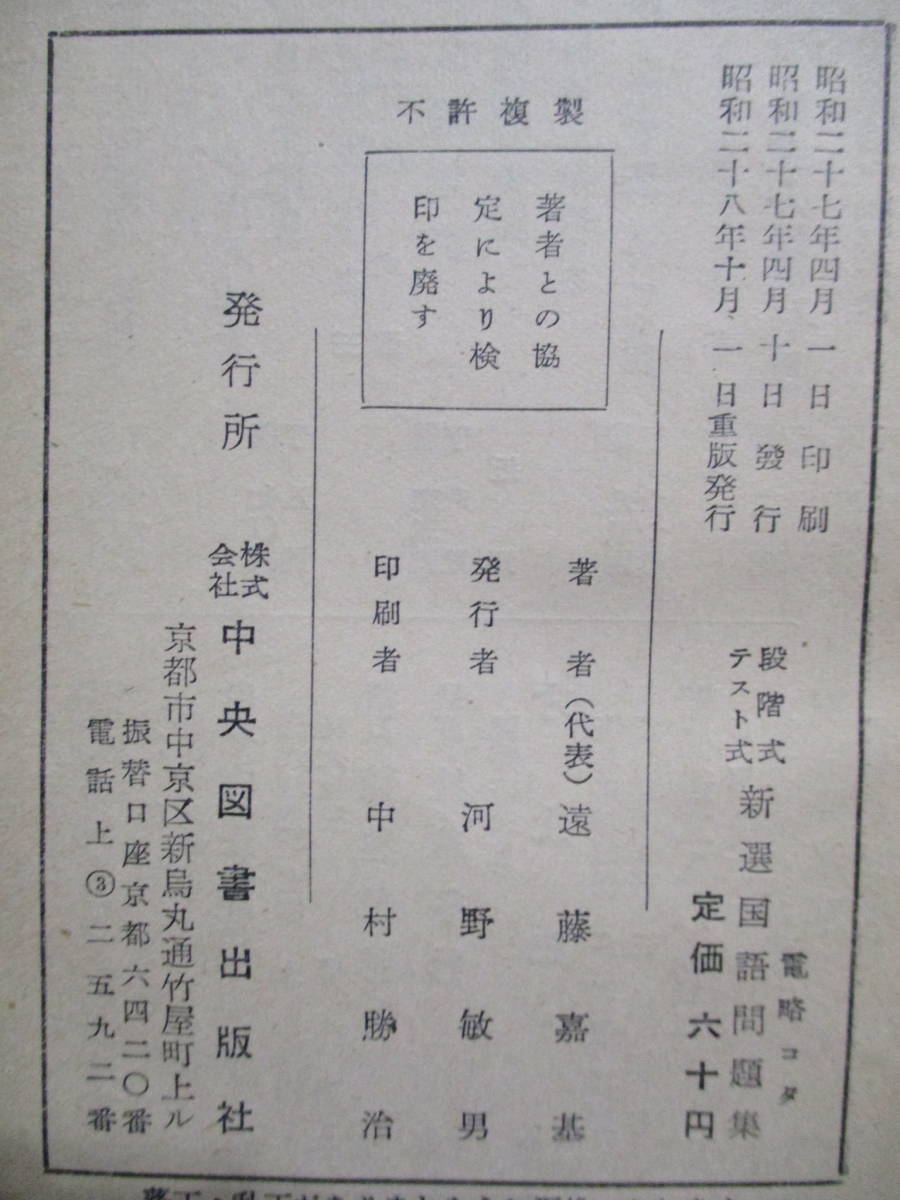 昭和二十七年四月一日印刷
昭和二十七年四月十日發行
昭和二十八年十月一日重版発行
段階式
テスト式
新選国語問題集
電略コタ
定価六十円
不許複製
著者との協
定により検
印を廃す
著者(代表)遠藤嘉基
発行者 河野敏男
印刷者 中村勝治
発行所 株式会社 中央図書出版社
京都市中京区新烏丸通竹屋町上ル
振替口座京都六四二〇番
電話上③二五九二番